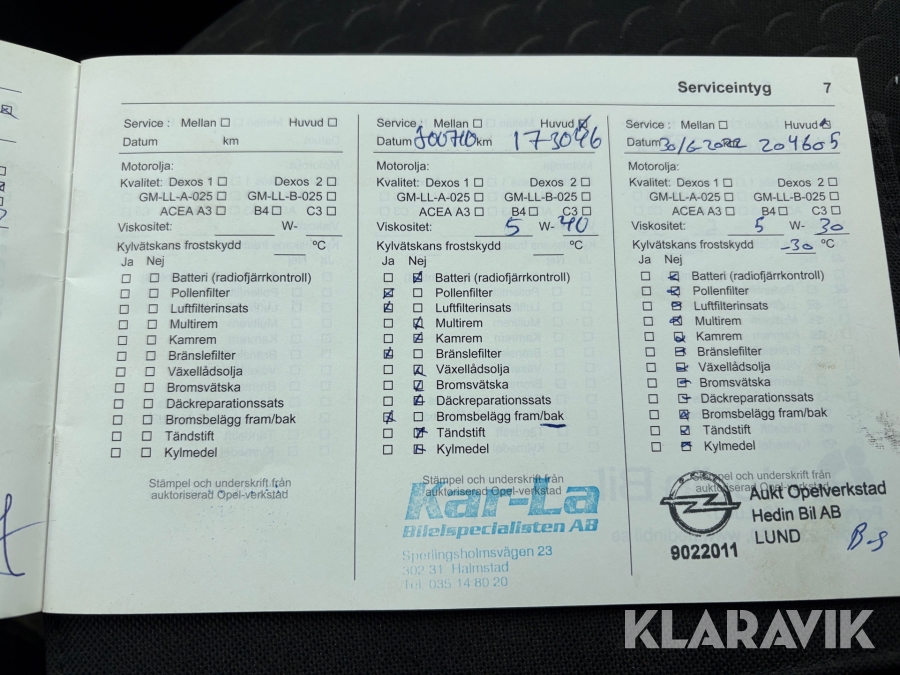 Serviceintyg 7
Service : Mellan ☐ Huvud ☐
Datum km
Motorolja:
Kvalitet: Dexos 1 ☐ Dexos 2 ☐
GM-LL-A-025 ☐ GM-LL-B-025 ☐
ACEA A3 ☐ B4 ☐ C3 ☐
Viskositet: W-
Kylvätskans frostskydd °C
Ja Nej
☐ ☐ Batteri (radiofjärrkontroll)
☐ ☐ Pollenfilter
☐ ☐ Luftfilterinsats
☐ ☐ Multirem
☐ ☐ Kamrem
☐ ☐ Bränslefilter
☐ ☐ Växellådsolja
☐ ☐ Bromsvätska
☐ ☐ Däckreparationssats
☐ ☐ Bromsbelägg fram/bak
☐ ☐ Tändstift
☐ ☐ Kylmedel
Stämpel och underskrift från
auktoriserad Opel-verkstad
Service : Mellan ☐ Huvud ☑
Datum km 173046
Motorolja:
Kvalitet: Dexos 1 ☐ Dexos 2 ☐
GM-LL-A-025 ☐ GM-LL-B-025 ☐
ACEA A3 ☐ B4 ☐ C3 ☐
Viskositet: 5 W- 40
Kylvätskans frostskydd °C
Ja Nej
☐ ☑ Batteri (radiofjärrkontroll)
☑ ☐ Pollenfilter
☑ ☐ Luftfilterinsats
☐ ☑ Multirem
☐ ☑ Kamrem
☑ ☐ Bränslefilter
☐ ☑ Växellådsolja
☐ ☑ Bromsvätska
☐ ☑ Däckreparationssats
☑ ☐ Bromsbelägg fram/bak
☐ ☑ Tändstift
☐ ☑ Kylmedel
Stämpel och underskrift från
auktoriserad Opel-verkstad
Kar-La
Bilelspecialisten AB
Sperlingsholmsvägen 23
302 31 Halmstad
Tel 035 14 80 20
Service : Mellan ☐ Huvud ☑
Datum 30/6-2022 204605
Motorolja:
Kvalitet: Dexos 1 ☐ Dexos 2 ☐
GM-LL-A-025 ☐ GM-LL-B-025 ☐
ACEA A3 ☐ B4 ☐ C3 ☐
Viskositet: 5 W- 30
Kylvätskans frostskydd -30 °C
Ja Nej
☐ ☑ Batteri (radiofjärrkontroll)
☐ ☑ Pollenfilter
☐ ☑ Luftfilterinsats
☐ ☑ Multirem
☐ ☑ Kamrem
☐ ☑ Bränslefilter
☐ ☑ Växellådsolja
☐ ☑ Bromsvätska
☐ ☑ Däckreparationssats
☐ ☑ Bromsbelägg fram/bak
☐ ☑ Tändstift
☐ ☑ Kylmedel
Stämpel och underskrift från
auktoriserad Opel-verkstad
Aukt Opelverkstad
Hedin Bil AB
LUND
9022011
KLARAVIK